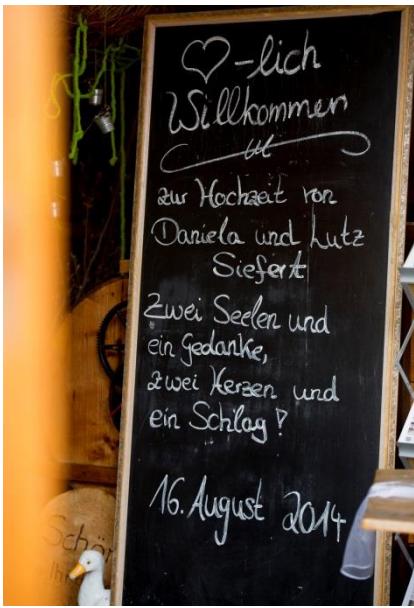 ♡-lich
Willkommen
zur Hochzeit von
Daniela und Lutz
Siefert
Zwei Seelen und
ein Gedanke,
zwei Herzen und
ein Schlag!
16. August 2014
Schön